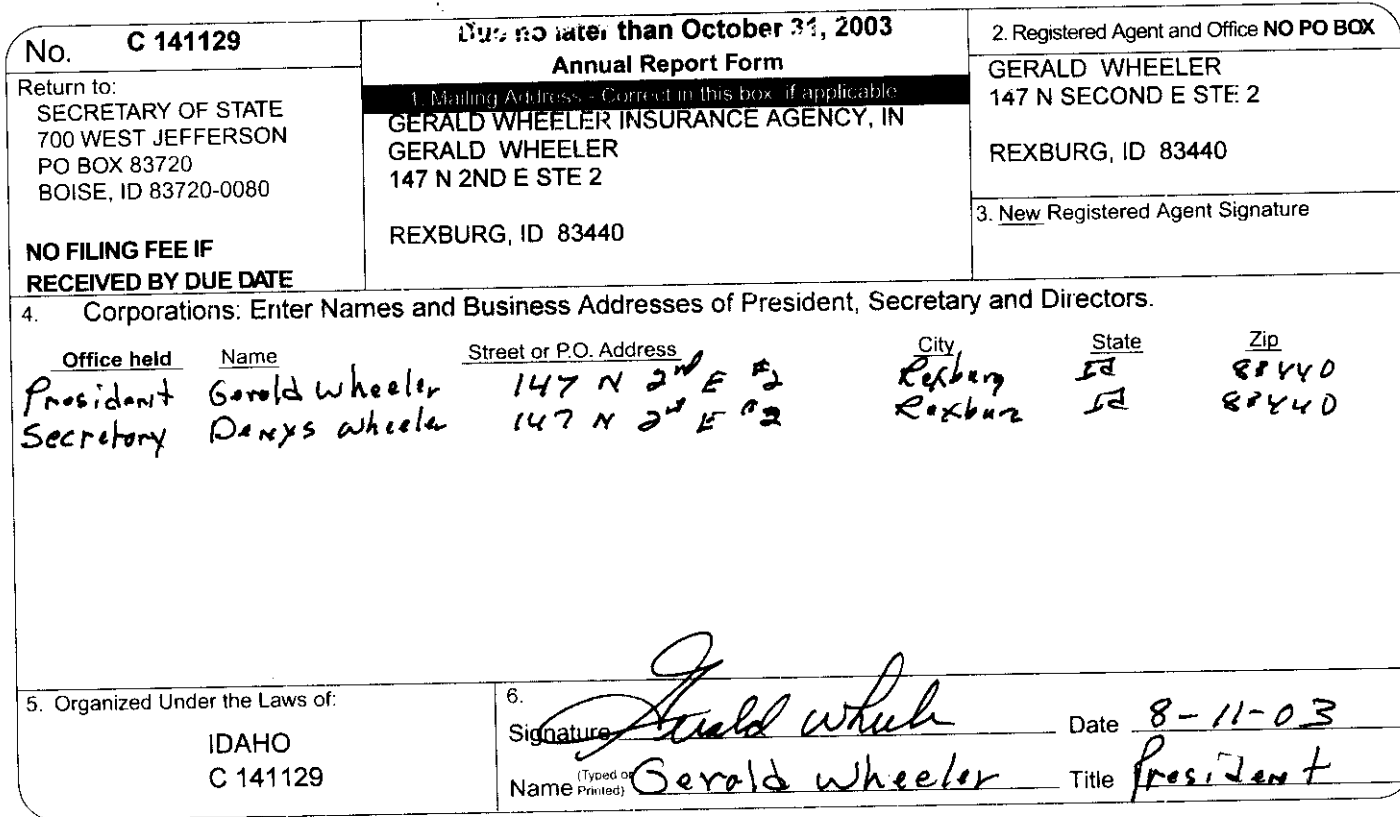 No. C 141129
Return to:
SECRETARY OF STATE
700 WEST JEFFERSON
PO BOX 83720
BOISE, ID 83720-0080
NO FILING FEE IF
RECEIVED BY DUE DATE
Due no later than October 31, 2003
Annual Report Form
1. Mailing Address - Correct in this box if applicable
GERALD WHEELER INSURANCE AGENCY, IN
GERALD WHEELER
147 N 2ND E STE 2
REXBURG, ID 83440
2. Registered Agent and Office NO PO BOX
GERALD WHEELER
147 N SECOND E STE 2
REXBURG, ID 83440
3. New Registered Agent Signature
4. Corporations: Enter Names and Business Addresses of President, Secretary and Directors.
Office held Name Street or P.O. Address City State Zip
President Gerald Wheeler 147 N 2nd E #2 Rexburg Id 83440
Secretary Denys Wheeler 147 N 2nd E #2 Rexburg Id 83440
5. Organized Under the Laws of:
IDAHO
C 141129
6.
Signature Gerald Wheeler Date 8-11-03
Name (Typed or Printed) Gerald Wheeler Title President